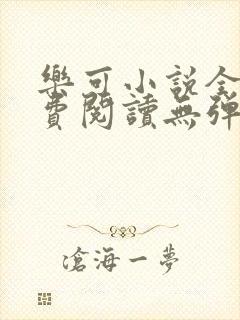 樂可小說全
費閱讀無彈
滄海一夢